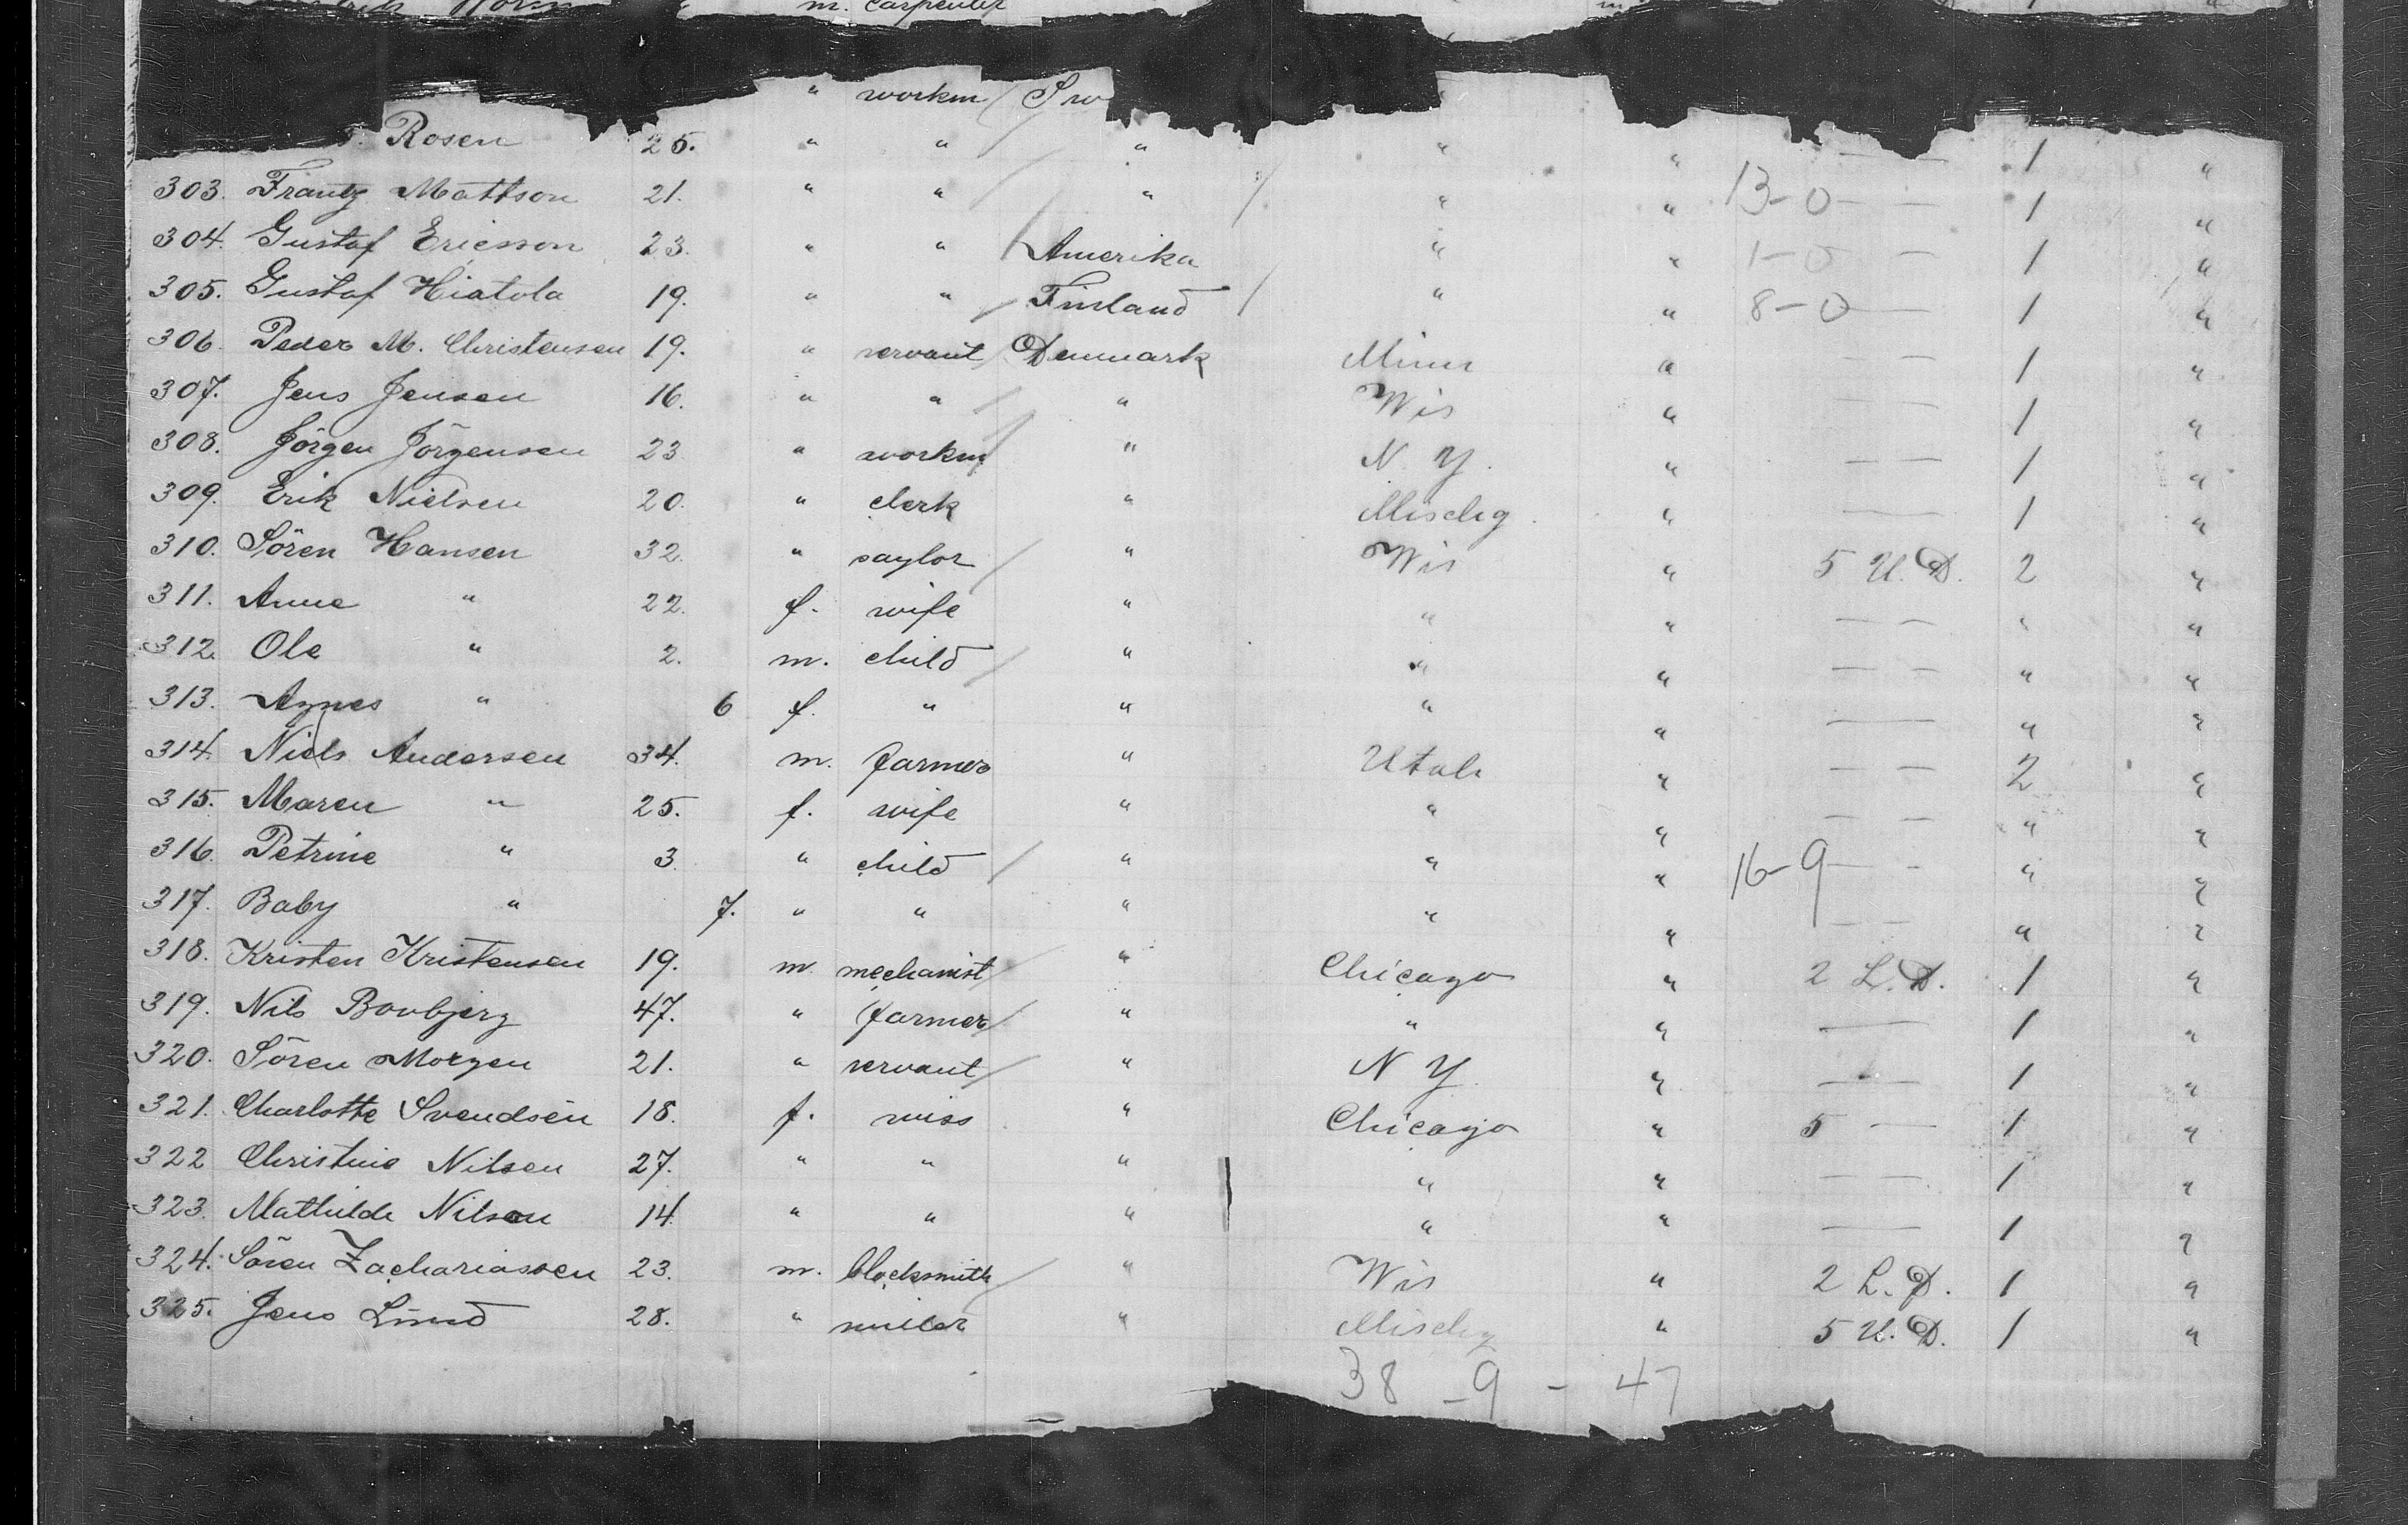 m. carpenter
" workm Sw
Rosen 25. " " " " " — 1 "
303. Frantz Mattson 21. " " " " " 13-0 — 1 "
304. Gustaf Ericsson 23. " " Amerika " " 1-0 — 1 "
305. Gustaf Hiatola 19. " " Finland " " 8-0 — 1 "
306. Peder M. Christensen 19. " servant Denmark Minn " — — 1 "
307. Jens Jensen 16. " " " Wis " — — 1 "
308. Jörgen Jörgensen 23 " workm " N. Y. " — — 1 "
309. Erik Nielsen 20. " clerk " Mischg. " — — 1 "
310. Sören Hansen 32. " saylor " Wis " 5 U. D. 2 "
311. Anne " 22. f. wife " " " — — " "
312. Ole " 2. m. child " " " — — " "
313. Agnes " 6 f. " " " " — " "
314. Niels Andersen 34. m. farmer " Utah " — — 2 "
315. Maren " 25. f. wife " " " — — " "
316. Petrine " 3. " child " " " 16-9 — - " "
317. Baby " 7. " " " " " — — " "
318. Kristen Kristensen 19. m. mechanist " Chicago " 2 L. D. 1 "
319. Nils Bovbjerg 47. " farmer " " " — 1 "
320. Sören Morgen 21. " servant " N Y. " — 1 "
321. Charlotte Svendsen 18. f. miss " Chicago " 5 — 1 "
322 Christine Nilsen 27. " " " " " — 1 "
323. Mathilde Nilsen 14. " " " " " — 1 "
324. Sören Zachariassen 23. m. blocksmith " Wis " 2 L. D. 1 "
325. Jens Lund 28. " miller " Mischg " 5 U. D. 1 "
38 - 9 - 47